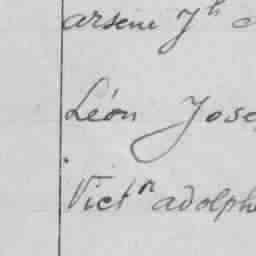 arsene Jh
Léon Jose
Victn adolph